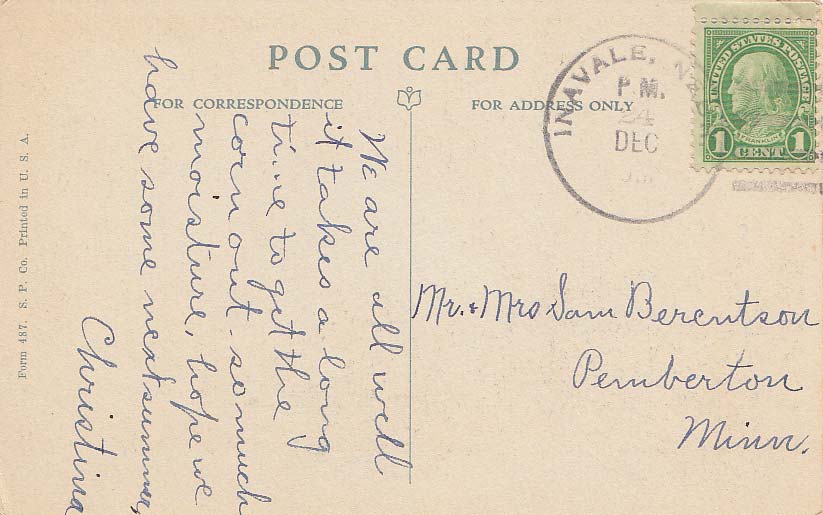 POST CARD
FOR CORRESPONDENCE
FOR ADDRESS ONLY
INAVALE, N
P.M.
24
DEC
UNITED STATES POSTAGE
FRANKLIN
1 CENT 1
We are all well
it takes a long
time to get the
corn out. so much
moisture, hope we
have some next summer,
Christina
Mr. & Mrs Sam Berentson
Pemberton
Minn.
Form 487. S. P. Co. Printed in U. S. A.